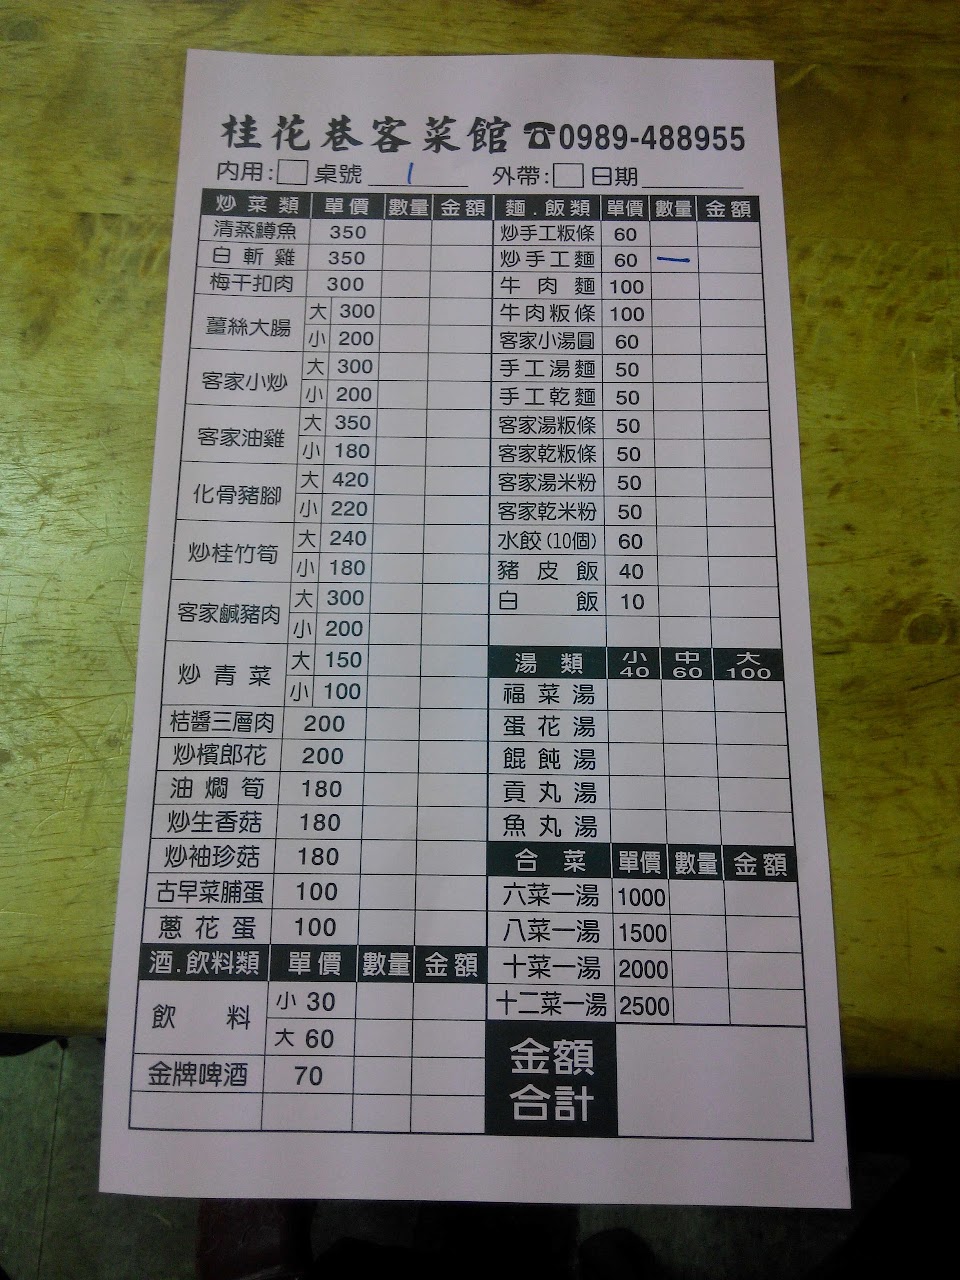 桂花巷客菜館☎0989-488955
內用:□桌號 1 外帶:□日期
炒菜類 單價 數量 金額
清蒸鱒魚 350
白斬雞 350
梅干扣肉 300
薑絲大腸 大 300
小 200
客家小炒 大 300
小 200
客家油雞 大 350
小 180
化骨豬腳 大 420
小 220
炒桂竹筍 大 240
小 180
客家鹹豬肉 大 300
小 200
炒青菜 大 150
小 100
桔醬三層肉 200
炒檳郎花 200
油燜筍 180
炒生香菇 180
炒袖珍菇 180
古早菜脯蛋 100
蔥花蛋 100
酒.飲料類 單價 數量 金額
飲料 小 30
大 60
金牌啤酒 70
麵.飯類 單價 數量 金額
炒手工粄條 60
炒手工麵 60 一
牛肉麵 100
牛肉粄條 100
客家小湯圓 60
手工湯麵 50
手工乾麵 50
客家湯粄條 50
客家乾粄條 50
客家湯米粉 50
客家乾米粉 50
水餃(10個) 60
豬皮飯 40
白飯 10
湯類 小40 中60 大100
福菜湯
蛋花湯
餛飩湯
貢丸湯
魚丸湯
合菜 單價 數量 金額
六菜一湯 1000
八菜一湯 1500
十菜一湯 2000
十二菜一湯 2500
金額
合計